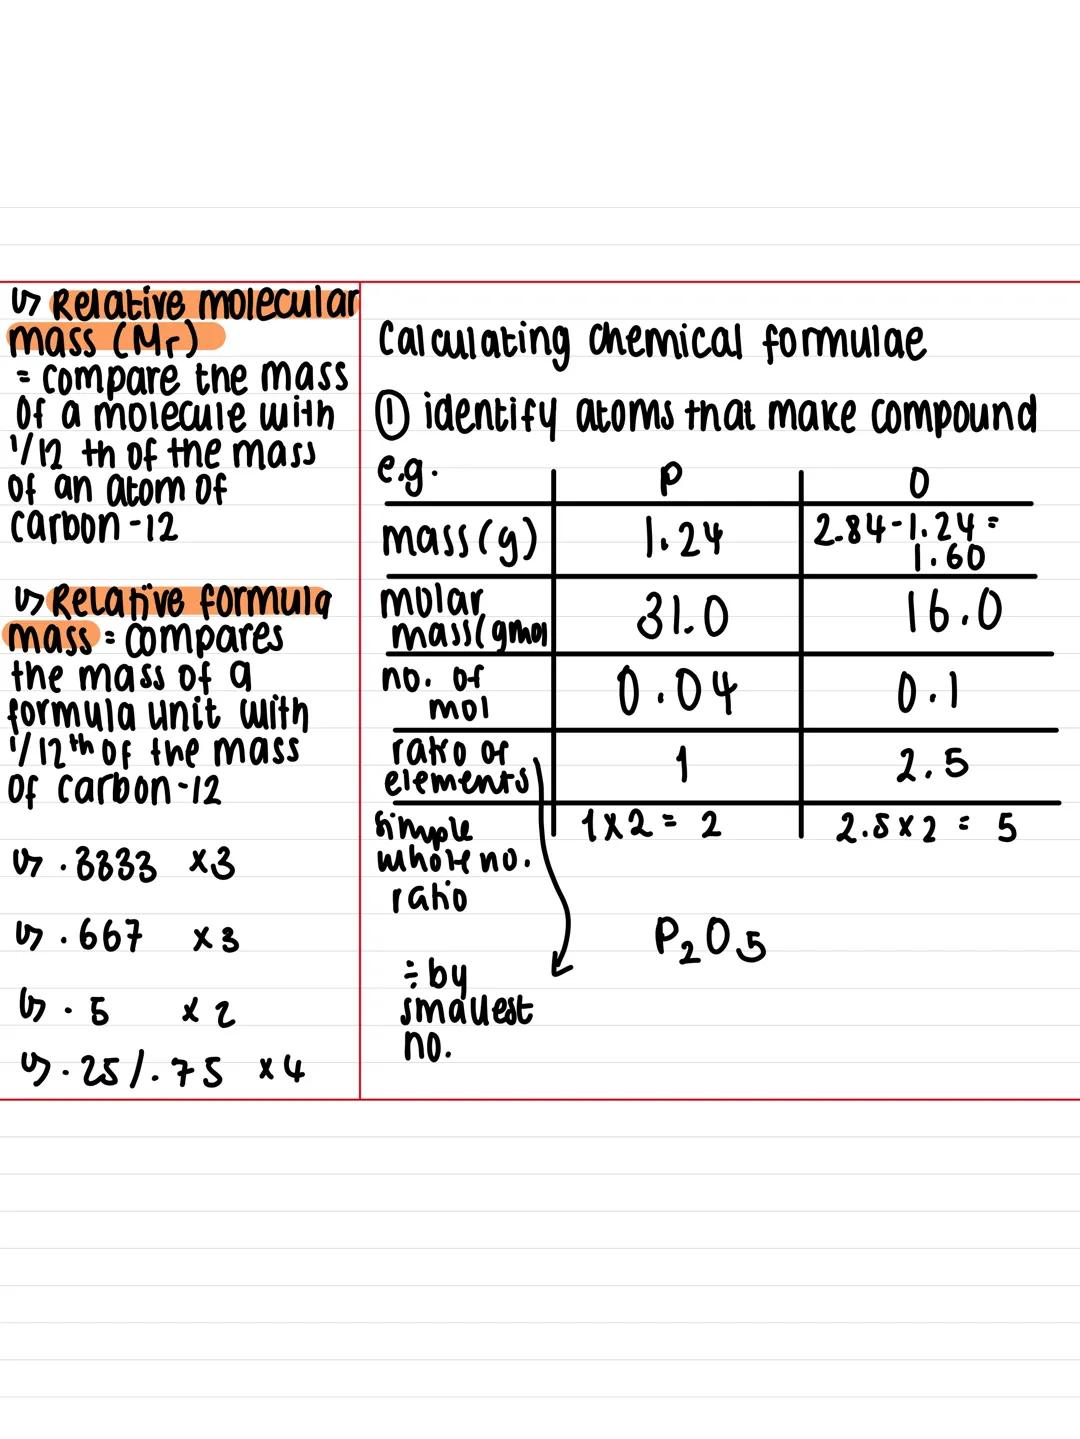 ↳ Relative molecular
mass (Mr)
= compare the mass
of a molecule with
1/12 th of the mass
of an atom of
carbon-12
↳ Relative formula
mass = compares
the mass of a
formula unit with
1/12th of the mass
of carbon-12
↳ .3333 x3
↳ .667 x3
↳ .5 x2
↳ .25/.75 x4
Calculating chemical formulae
① identify atoms that make compound
e.g. P O
mass(g) 1.24 2.84-1.24=
1.60
molar
mass(gmol 31.0 16.0
no. of
mol 0.04 0.1
ratio of
elements 1 2.5
simple 1x2=2 2.5x2=5
whole no.
ratio
P₂O₅
÷by
smallest
no.